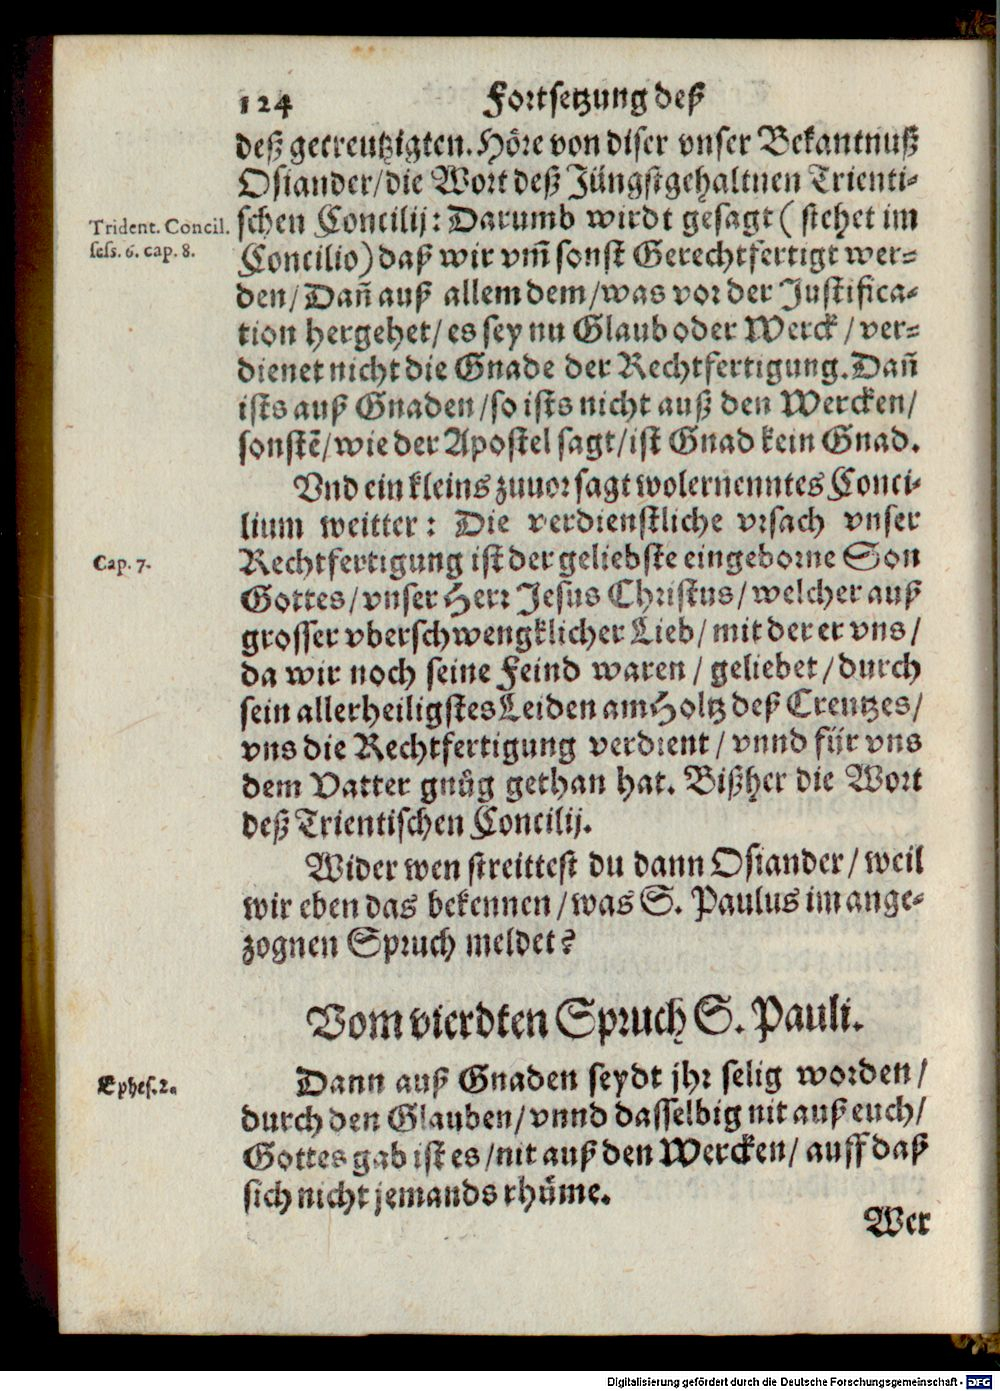 124 Fortsetzung deß
deß gecreutzigten. Höre von diser vnser Bekantnuß
Osiander/die Wort deß Jüngstgehaltnen Trienti-
Trident. Concil.
sess. 6. cap. 8.
schen Concilij: Darumb wirdt gesagt (stehet im
Concilio) daß wir vm̃ sonst Gerechtfertigt wer-
den/Dañ auß allem dem/was vor der Justifica-
tion hergehet/es sey nu Glaub oder Werck/ver-
dienet nicht die Gnade der Rechtfertigung. Dañ
ists auß Gnaden/so ists nicht auß den Wercken/
sonstẽ/wie der Apostel sagt/ist Gnad kein Gnad.
Vnd ein kleins zuuor sagt wolernenntes Conci-
lium weitter: Die verdienstliche vrsach vnser
Cap. 7.
Rechtfertigung ist der geliebste eingeborne Son
Gottes/vnser Herr Jesus Christus/welcher auß
grosser vberschwengklicher Lieb/mit der er vns/
da wir noch seine Feind waren/geliebet/durch
sein allerheiligstes Leiden am Holtz deß Creutzes/
vns die Rechtfertigung verdient/vnnd für vns
dem Vatter gnůg gethan hat. Bißher die Wort
deß Trientischen Concilij.
Wider wen streittest du dann Osiander/weil
wir eben das bekennen/was S. Paulus im ange-
zognen Spruch meldet?
Vom vierdten Spruch S. Pauli.
Ephes. 2.
Dann auß Gnaden seydt jhr selig worden/
durch den Glauben/vnnd dasselbig nit auß euch/
Gottes gab ist es/nit auß den Wercken/auff daß
sich nicht jemands rhüme.
Wer
Digitalisierung gefördert durch die Deutsche Forschungsgemeinschaft - DFG